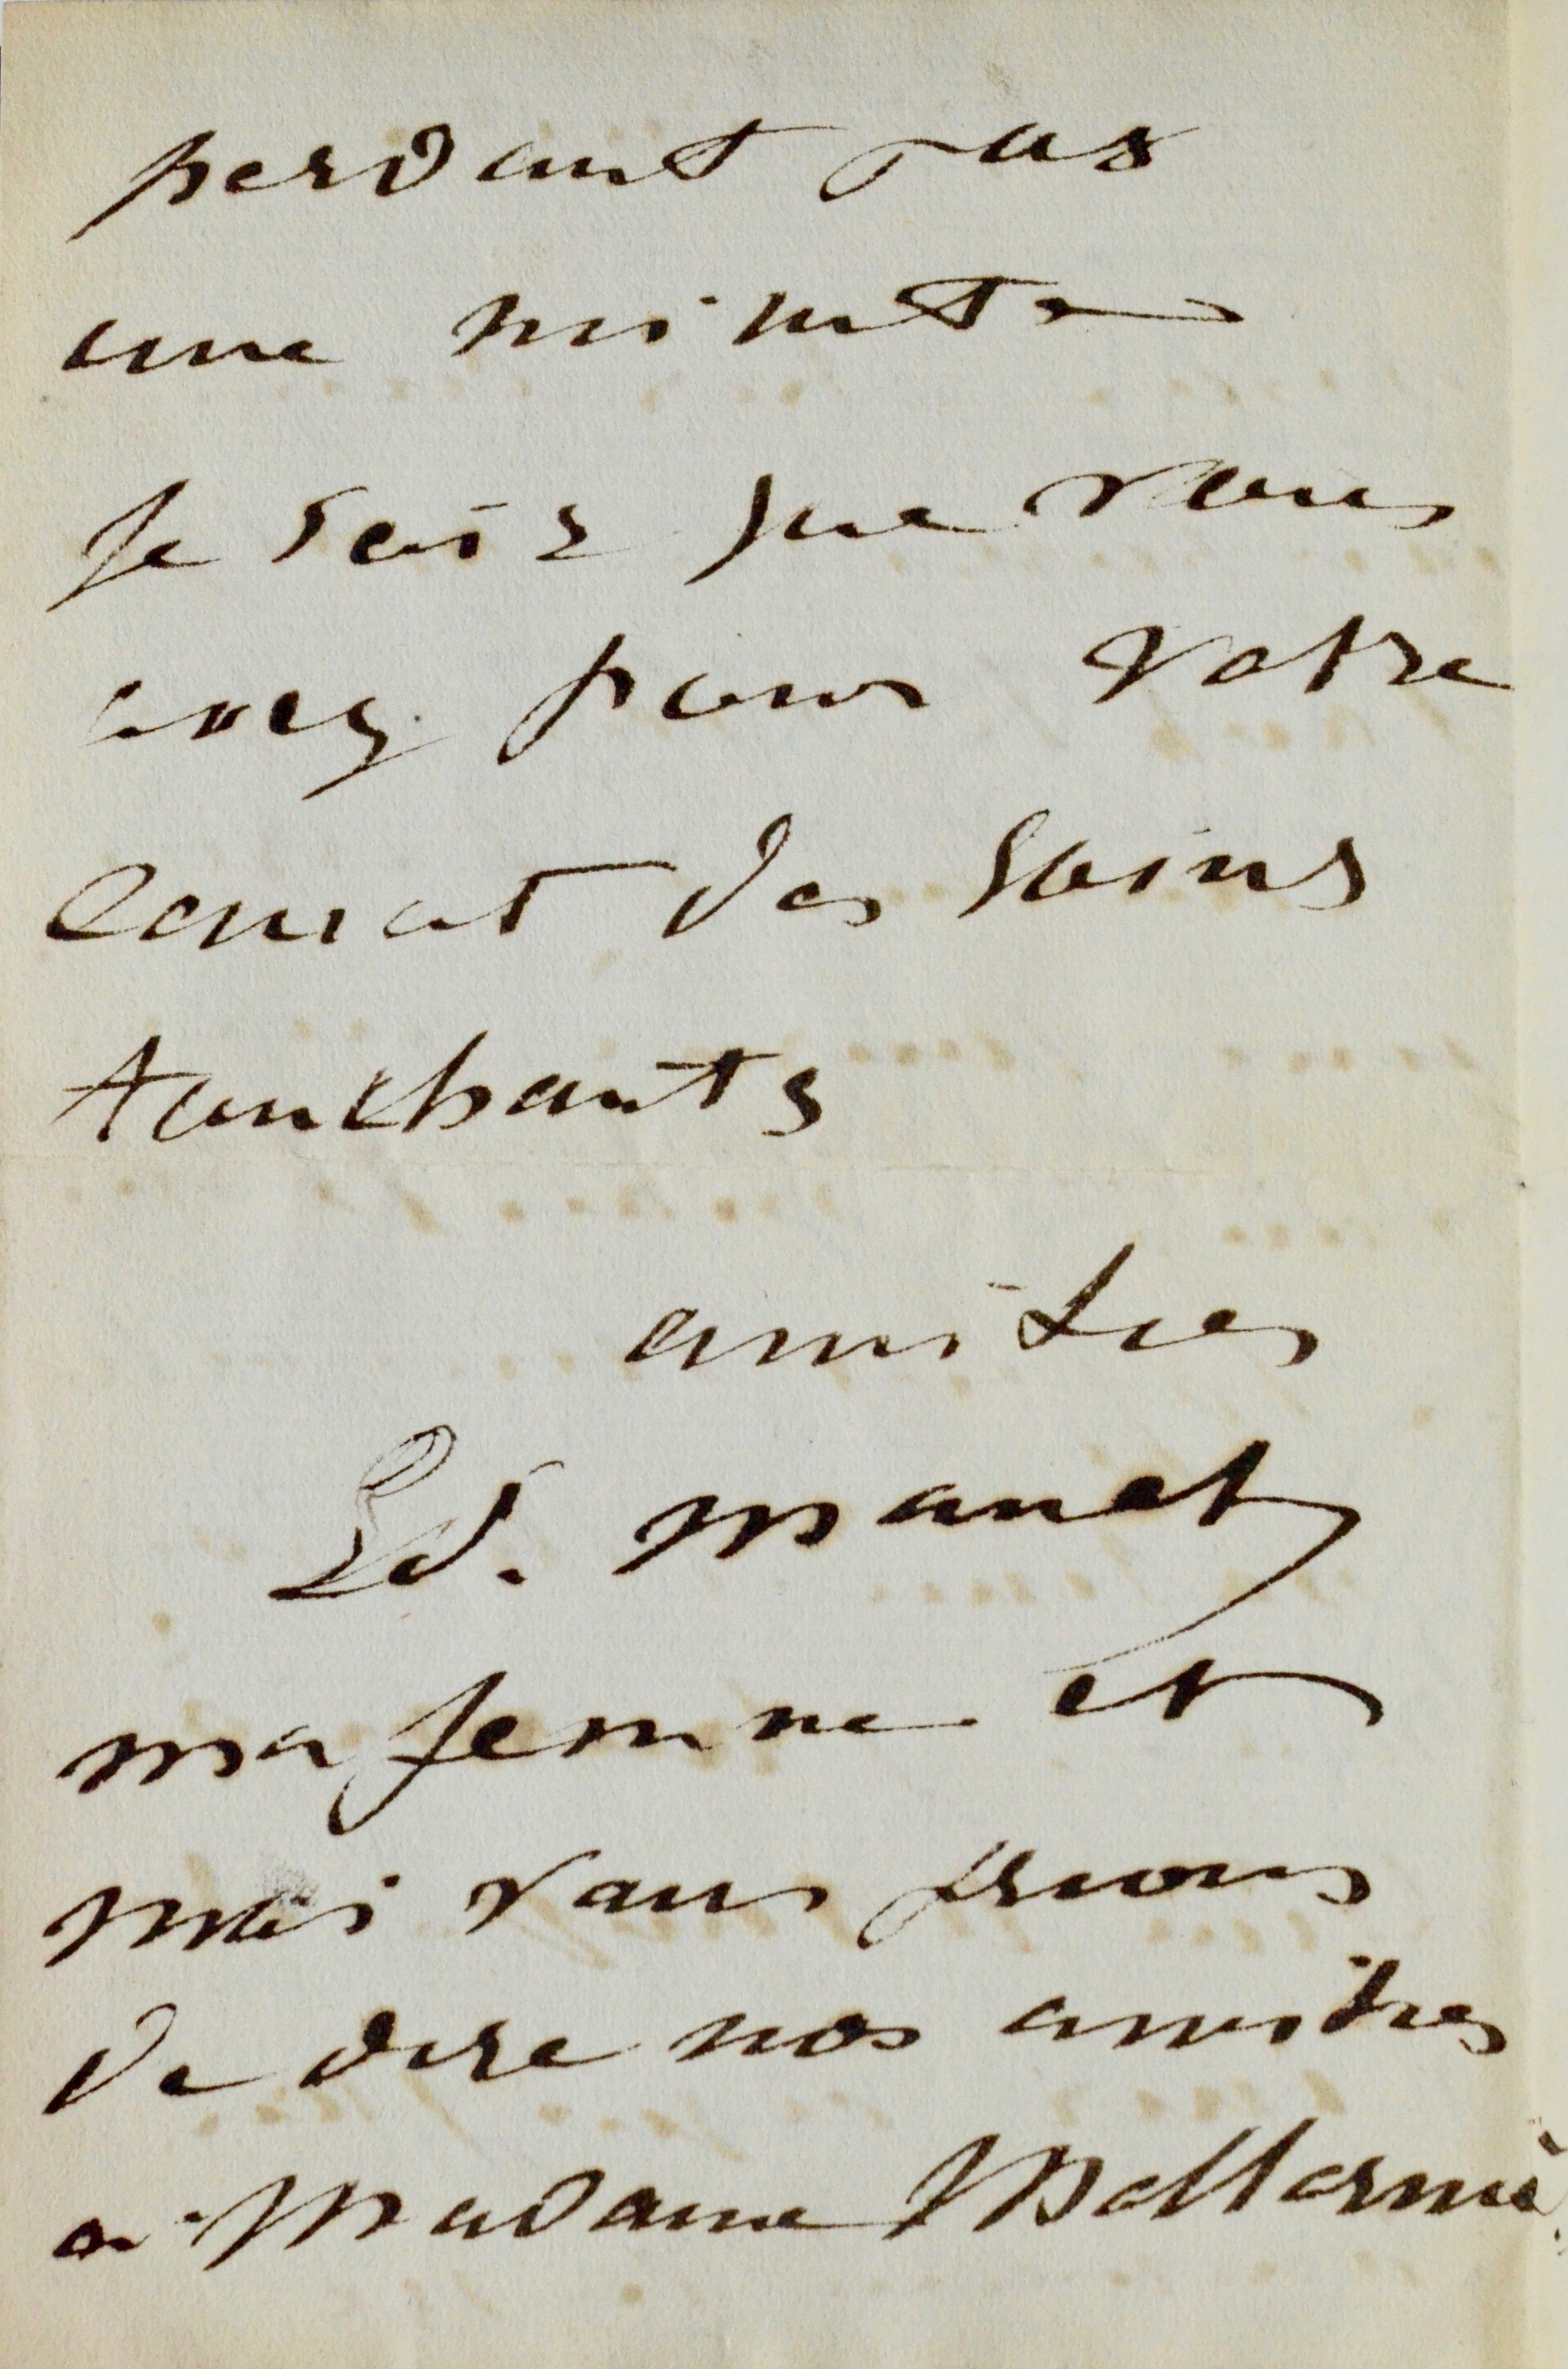 perdant pas
une minute
Je sais que vous
avez pour votre
Convat des soins
touchants
amities
Ed. Manet
ma femme et
moi vous prions
de dire nos amities
a Madame Mallarmé